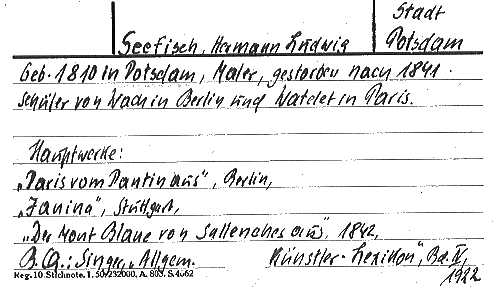 Stadt
Seefisch, Hermann Ludwig Potsdam
Geb. 1810 in Potsdam, Maler, gestorben nach 1841.
Schüler von Wach in Berlin und Watelet in Paris.
Hauptwerke:
„Paris vom Pantin aus", Berlin,
„Janina", Stuttgart,
„Der Mont Blanc von Sallenches aus", 1842,
B.Qu.: Singer, Allgem. Künstler-Lexikon", Bd. IV,
Reg. 10. Stichnote. 1. 50/232000. A. 803. S. 4562
1922